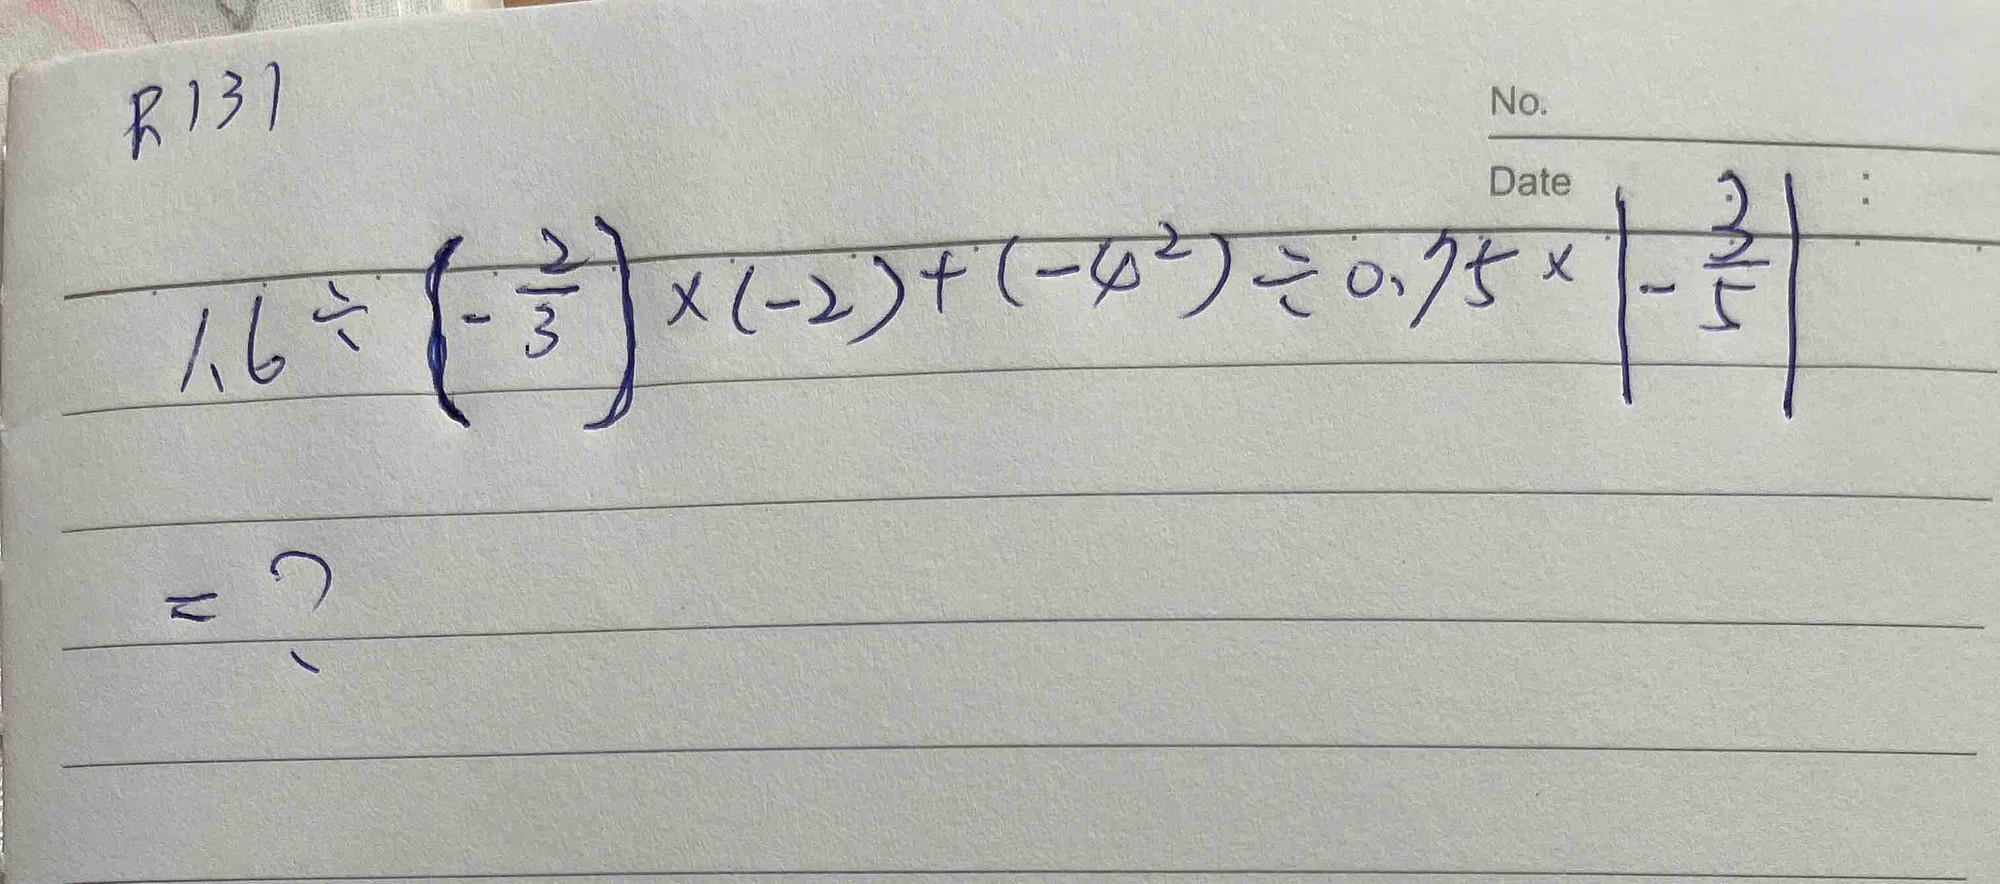 R131
No.
Date
1.6 ÷ (-2/3) × (-2) + (-4²) ÷ 0.75 × |-3/5|
= ?